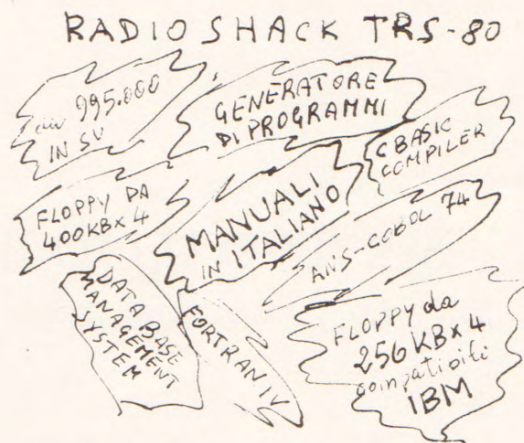 RADIO SHACK TRS-80
da 995.000
IN SU
GENERATORE
DI PROGRAMMI
CBASIC
COMPILER
FLOPPY DA
400KB x 4
MANUALI
IN ITALIANO
ANS-COBOL 74
DATA BASE
MANAGEMENT
SYSTEM
FORTRAN IV
FLOPPY da
256 KB x 4
compatibili
IBM